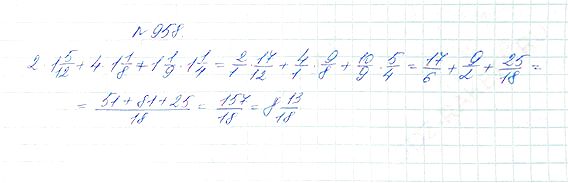 № 958.
2 · 1 5/12 + 4 · 1 1/8 + 1 1/9 · 1 1/4 = 2/1 · 17/12 + 4/1 · 9/8 + 10/9 · 5/4 = 17/6 + 9/2 + 25/18 =
= (51 + 81 + 25)/18 = 157/18 = 8 13/18